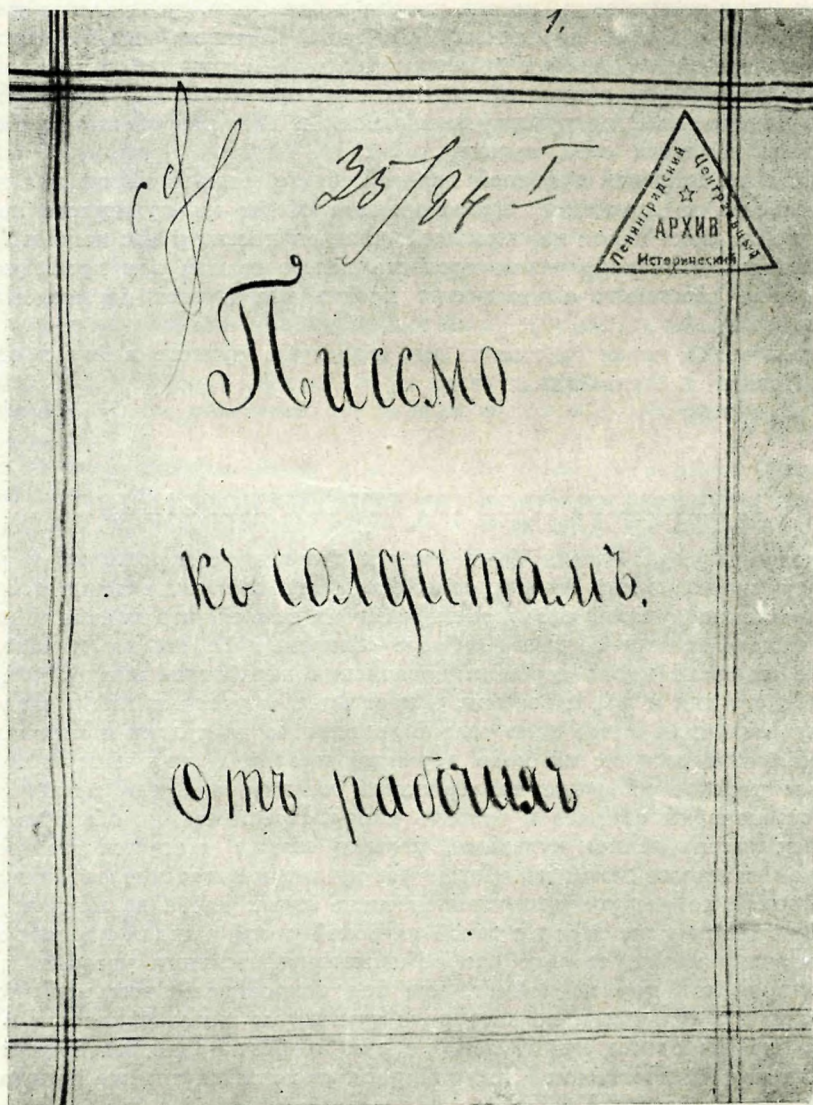 1.
35/84 I
Ленинградский Центральный
АРХИВ
Исторический
Письмо
къ солдатамъ.
Отъ рабочихъ